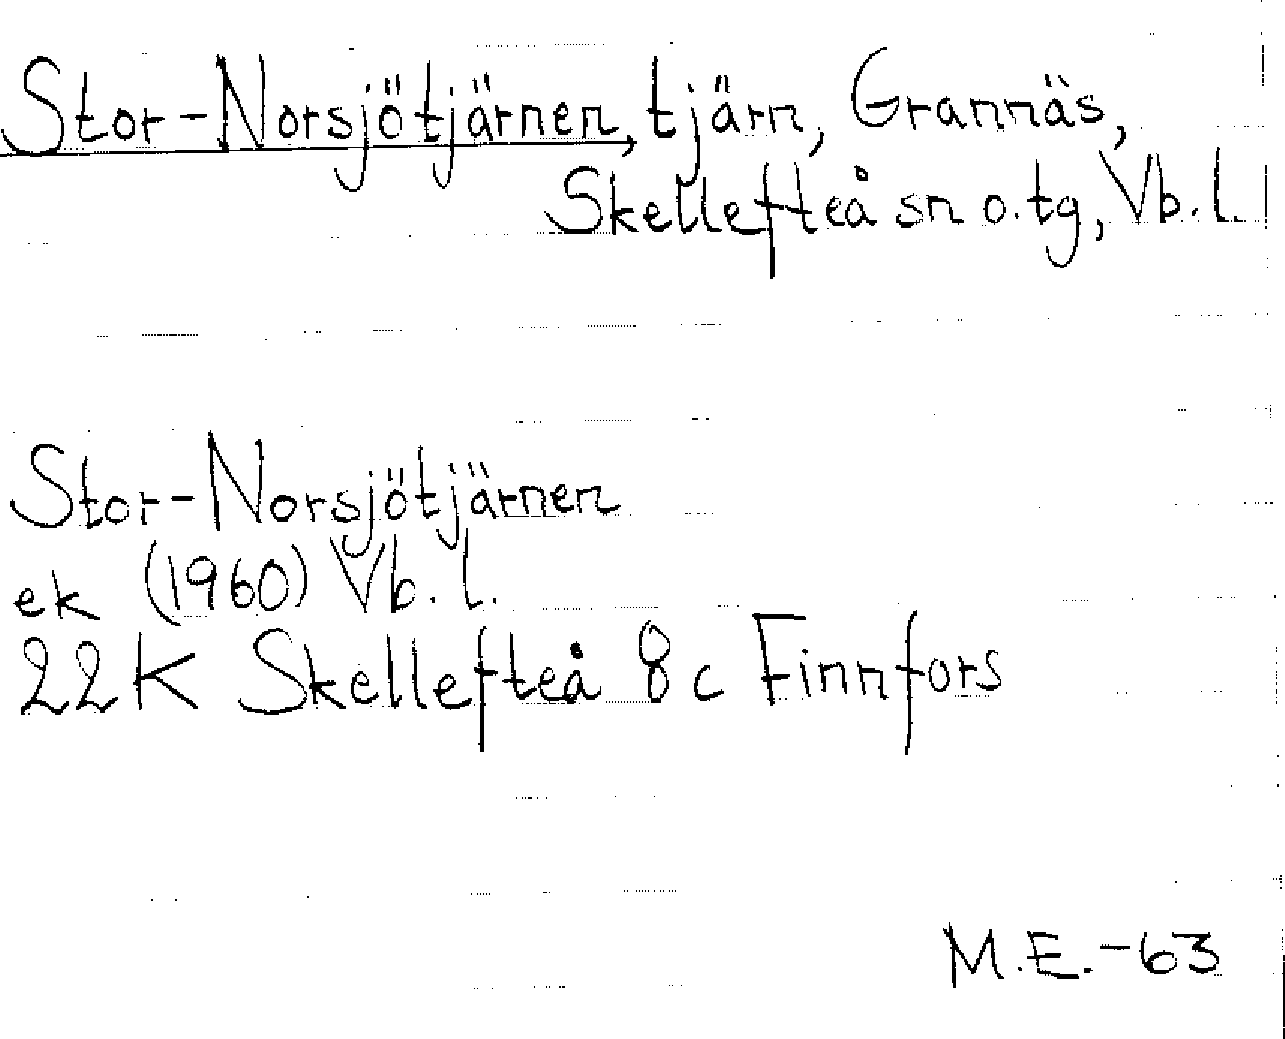 Stor-Norsjötjärnen, tjärn, Grannäs,
Skellefteå sn o. tg, Vb. l.
Stor-Norsjötjärnen
ek (1960) Vb. l.
22K Skellefteå 8c Finnfors
M.E.-63